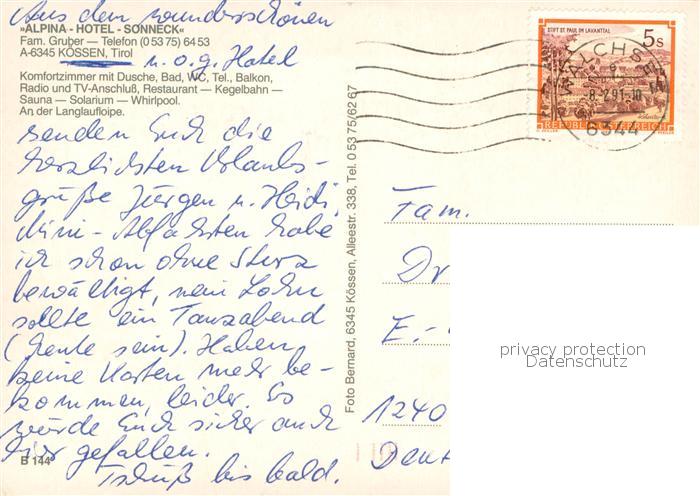 Aus dem wunderschönen
»ALPINA - HOTEL - SONNECK«
Fam. Gruber — Telefon (0 53 75) 64 53
A-6345 KÖSSEN, Tirol
u. o. g. Hotel
Komfortzimmer mit Dusche, Bad, WC, Tel., Balkon,
Radio und TV-Anschluß, Restaurant — Kegelbahn —
Sauna — Solarium — Whirlpool.
An der Langlaufloipe.
senden Euch die
herzlichsten Urlaubs-
grüße Jürgen u. Heidi.
Mini-Abfahrten habe
ich schon ohne Sturz
bewältigt, mein Lohn
sollte ein Tanzabend
(heute sein). Haben
keine Karten mehr be-
kommen, leider. Es
würde Euch sicher auch
hier gefallen.
Tschüß bis bald.
B 144
Foto Bernard, 6345 Kössen, Alleestr. 338, Tel. 0 53 75/62 67
STIFT ST. PAUL IM LAVANTTAL
5s
REPUBLIK ÖSTERREICH
WALCHSEE
-8.2.91-10
6344
Fam.
Dr
E.-
1240
Deut
privacy protection
Datenschutz